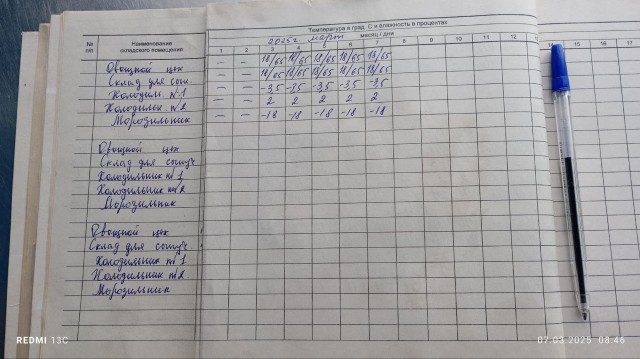 Температура в град. С и влажность в процентах
№ п/п Наименование складского помещения 2025г март месяц / дни
1 2 3 4 5 6 7 8 9 10 11 12 13 14 15 16 17
Овощной цех — — 18/65 18/65 18/65 18/65 18/65
Склад для сып. — — 18/65 18/65 18/65 18/65 18/65
Холодил. №1 — — -3,5 -3,5 -3,5 -3,5 -3,5
Холодильн. №2 — — 2 2 2 2 2
Морозильник — — -18 -18 -18 -18 -18
Овощной цех
Склад для сыпуч.
Холодильник №1
Холодильник №2
Морозильник
Овощной цех
Склад для сыпуч.
Холодильник №1
Холодильник №2
Морозильник
REDMI 13C
07.03.2025 08:46